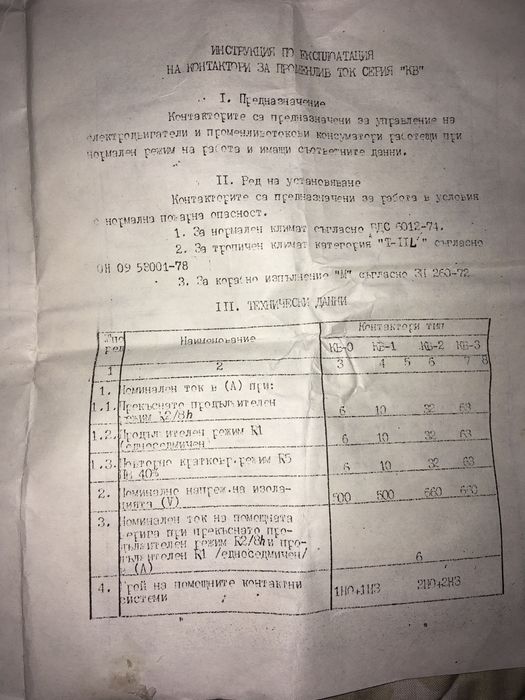 ИНСТРУКЦИЯ ПО ЕКСПЛОАТАЦИЯ
НА КОНТАКТОРИ ЗА ПРОМЕНЛИВ ТОК СЕРИЯ "КВ"
I. Предназначение
Контакторите са предназначени за управление на
електродвигатели и променливотокови консуматори работещи при
нормален режим на работа и имащи съответните данни.
II. Ред на установяване
Контакторите са предназначени за работа в условия
с нормална пожарна опасност.
1. За нормален климат съгласно БДС 6012-74.
2. За тропичен климат категория "Т-III" съгласно
ОН 09 58001-78
3. За корабно изпълнение "М" съгласно ЗИ 260-72
III. ТЕХНИЧЕСКИ ДАННИ
Наименование Контактори тип
КВ-0 КВ-1 КВ-2 КВ-3
1 2 3 4 5 6 7 8
1. Номинален ток в (А) при:
1.1. Прекъснато продължителен
режим К2/8h 6 10 32 63
1.2. Продължителен режим К1
(едноседмичен) 6 10 32 63
1.3. Повторно кратковр. режим К5
ПВ 40% 6 10 32 63
2. Номинално напреж. на изола-
цията (V) 500 500 660 660
3. Номинален ток на помощната
верига при прекъснато про-
дължителен режим К2/8h и про-
дължителен К1 /едноседмичен/
(А) 6
4. Брой на помощните контактни
системи 1НО+1НЗ 2НО+2НЗ